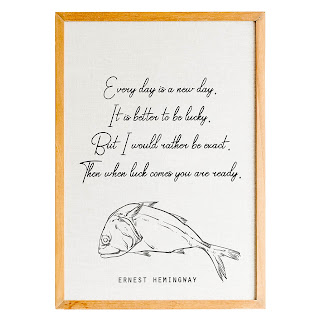 Every day is a new day.
It is better to be lucky.
But I would rather be exact.
Then when luck comes you are ready.
ERNEST HEMINGWAY